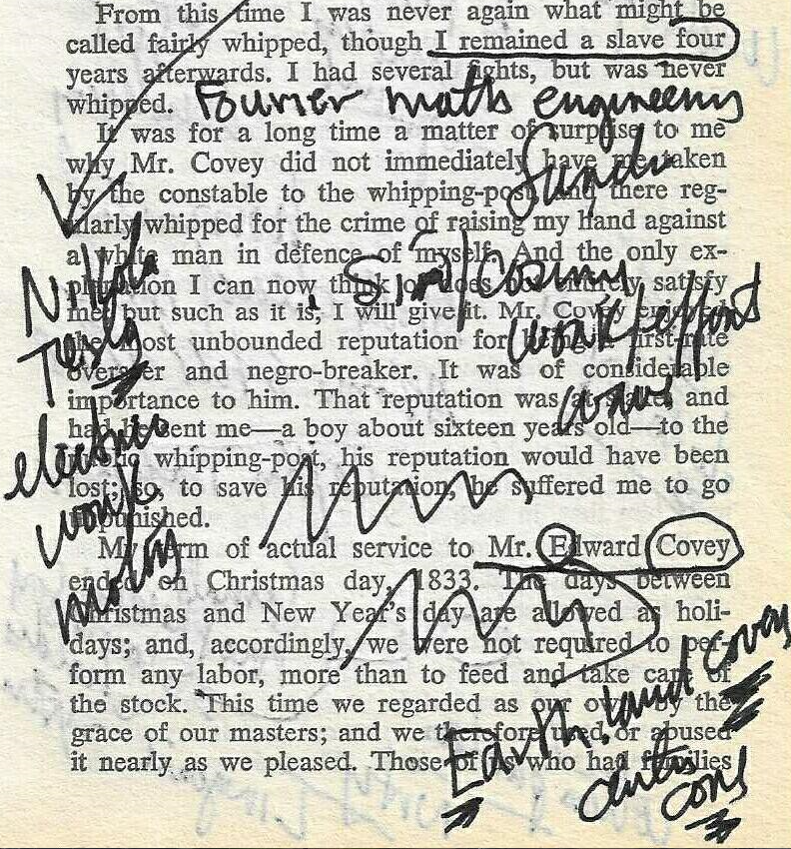 From this time I was never again what might be
called fairly whipped, though I remained a slave four
years afterwards. I had several fights, but was never
whipped.
Fourier math engineering
It was for a long time a matter of surprise to me
why Mr. Covey did not immediately have me taken
by the constable to the whipping-post, and there reg-
ularly whipped for the crime of raising my hand against
a white man in defence of myself. And the only ex-
planation I can now think of does not entirely satisfy
me; but such as it is, I will give it. Mr. Covey enjoyed
the most unbounded reputation for being a first-rate
overseer and negro-breaker. It was of considerable
importance to him. That reputation was at stake; and
had he sent me—a boy about sixteen years old—to the
public whipping-post, his reputation would have been
lost; so, to save his reputation, he suffered me to go
unpunished.
My term of actual service to Mr. Edward Covey
ended on Christmas day, 1833. The days between
Christmas and New Year's day are allowed as holi-
days; and, accordingly, we were not required to per-
form any labor, more than to feed and take care of
the stock. This time we regarded as our own, by the
grace of our masters; and we therefore used or abused
it nearly as we pleased. Those of us who had families
Nikola
Tesla
electric
work
motors
work/effort
Earth. land covey